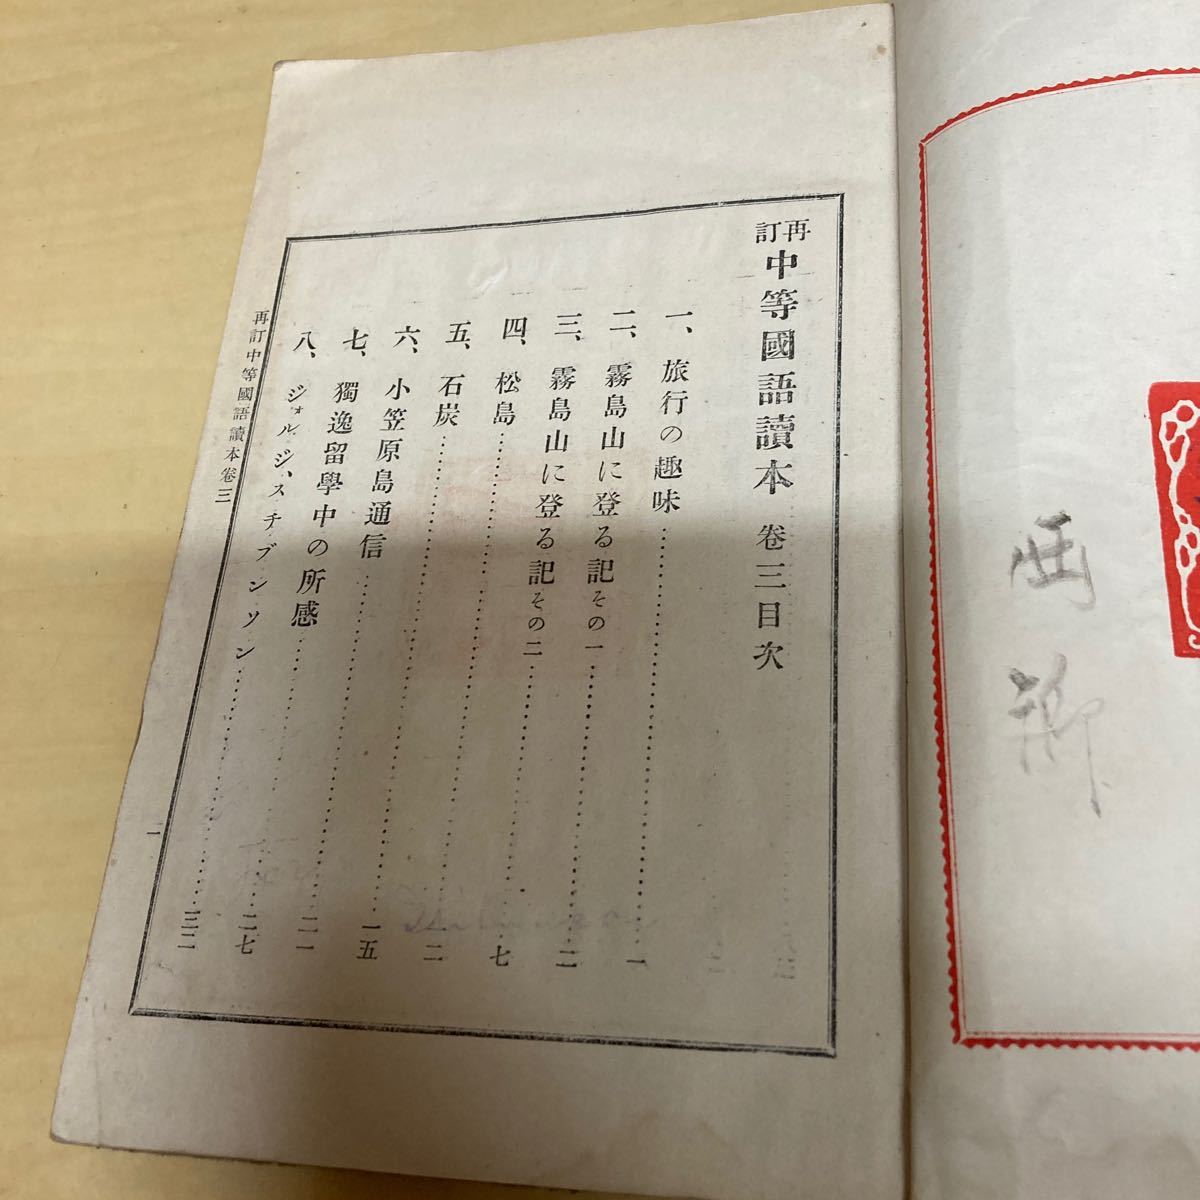 西郷
再訂中等國語讀本 卷三目次
一、旅行の趣味……一
二、霧島山に登る記その一……二
三、霧島山に登る記その二……七
四、松島……
五、石炭……一五
六、小笠原島通信……二一
七、獨逸留學中の所感……二七
八、ジョルジ、スチブンソン……三二
再訂中等國語讀本卷三
一